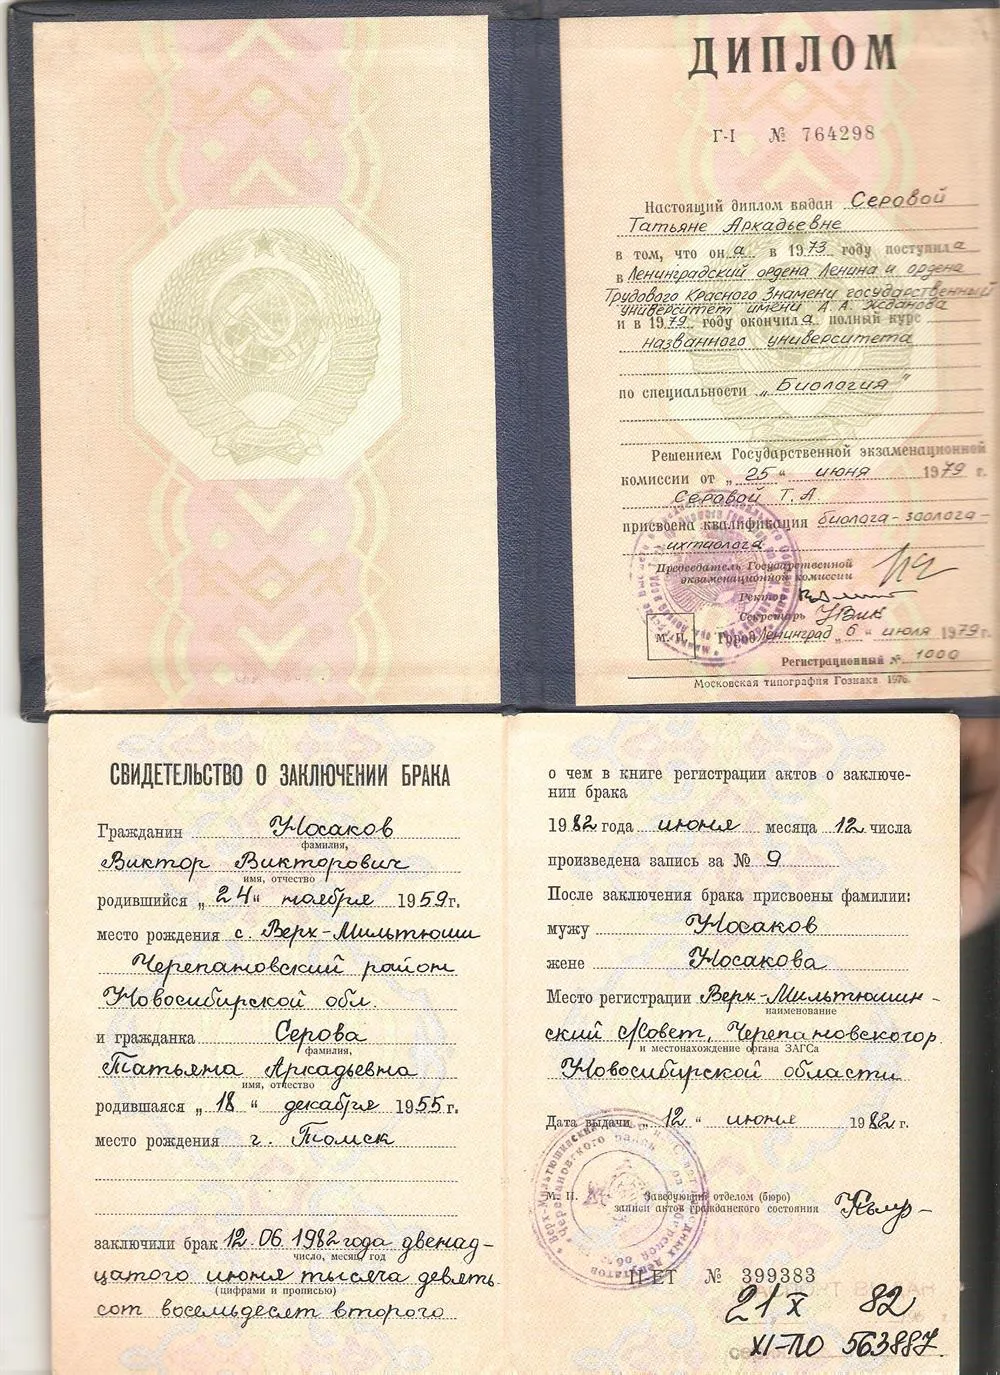 ДИПЛОМ
Г-I № 764298
Настоящий диплом выдан Серовой
Татьяне Аркадьевне
в том, что она в 1973 году поступила
в Ленинградский ордена Ленина и ордена
Трудового Красного Знамени государственный
университет имени А. А. Жданова
и в 1979 году окончила полный курс
названного университета
по специальности „Биология"
Решением Государственной экзаменационной
комиссии от „25" июня 1979 г.
Серовой Т. А
присвоена квалификация биолога-зоолога-
ихтиолога
Председатель Государственной
экзаменационной комиссии
Ректор
Секретарь
М. П. Город Ленинград „6" июля 1979 г.
Регистрационный № 1000
Московская типография Гознака. 1976.
СВИДЕТЕЛЬСТВО О ЗАКЛЮЧЕНИИ БРАКА
Гражданин Носаков
фамилия,
Виктор Викторович
имя, отчество
родившийся „24" ноября 1959 г.
место рождения с. Верх-Мильтюши
Черепановский район
Новосибирской обл.
и гражданка Серова
фамилия,
Татьяна Аркадьевна
имя, отчество
родившаяся „18" декабря 1955 г.
место рождения г. Томск
заключили брак 12.06.1982 года двенад-
число, месяц, год
цатого июня тысяча девять
(цифрами и прописью)
сот восемьдесят второго
о чем в книге регистрации актов о заключе-
нии брака
1982 года июня месяца 12 числа
произведена запись за № 9
После заключения брака присвоены фамилии:
мужу Носаков
жене Носакова
Место регистрации Верх-Мильтюшин-
наименование
ский с/совет, Черепановского р.
и местонахождение органа ЗАГСа
Новосибирской области
Дата выдачи „12" июня 1982 г.
М. П. Заведующий отделом (бюро)
записи актов гражданского состояния
II-ЕТ № 399383
21 X 82
XI-ПО 563887.